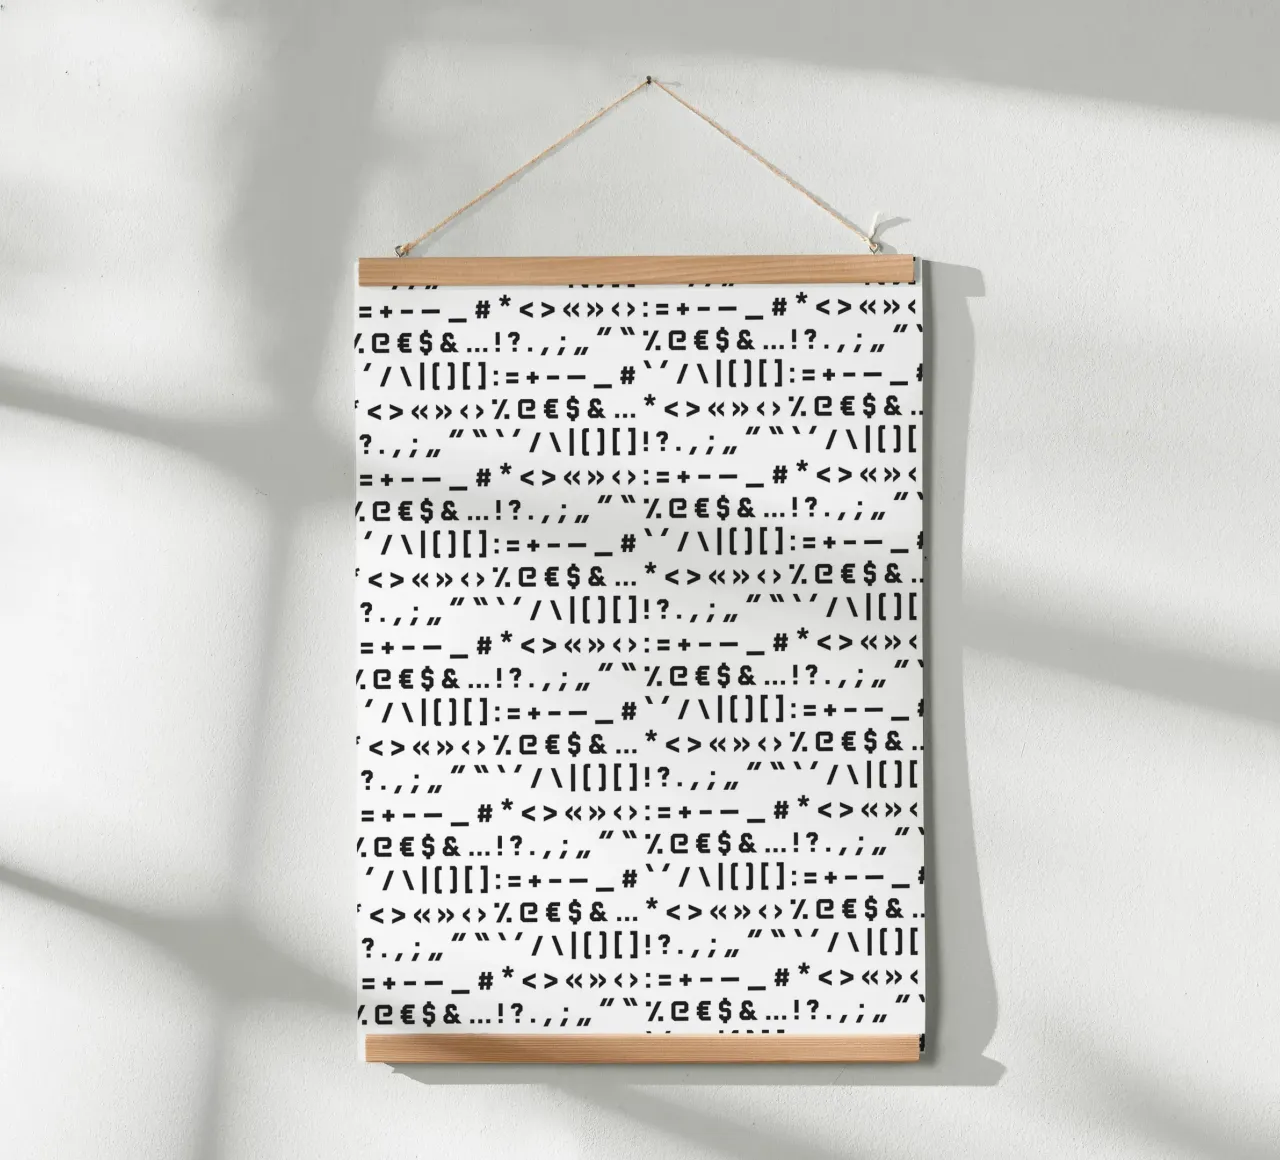 = + - — _ # * < > « » ‹ › : = + - — _ # * < > « » ‹
٪ @ € $ & … ! ? . , ; „ ” “ ٪ @ € $ & … ! ? . , ; „ ”
’ / \ | [ ] [ ] : = + - — _ # ‘ ’ / \ | [ ] [ ] : = + - — _ #
* < > « » ‹ › ٪ @ € $ & … * < > « » ‹ › ٪ @ € $ & …
? . , ; „ ” “ ‘ ’ / \ | [ ] [ ] ! ? . , ; „ ” “ ‘ ’ / \ | [ ] [
= + - — _ # * < > « » ‹ › : = + - — _ # * < > « » ‹
٪ @ € $ & … ! ? . , ; „ ” “ ٪ @ € $ & … ! ? . , ; „ ”
’ / \ | [ ] [ ] : = + - — _ # ‘ ’ / \ | [ ] [ ] : = + - — _ #
* < > « » ‹ › ٪ @ € $ & … * < > « » ‹ › ٪ @ € $ & …
? . , ; „ ” “ ‘ ’ / \ | [ ] [ ] ! ? . , ; „ ” “ ‘ ’ / \ | [ ] [
= + - — _ # * < > « » ‹ › : = + - — _ # * < > « » ‹
٪ @ € $ & … ! ? . , ; „ ” “ ٪ @ € $ & … ! ? . , ; „ ”
’ / \ | [ ] [ ] : = + - — _ # ‘ ’ / \ | [ ] [ ] : = + - — _ #
* < > « » ‹ › ٪ @ € $ & … * < > « » ‹ › ٪ @ € $ & …
? . , ; „ ” “ ‘ ’ / \ | [ ] [ ] ! ? . , ; „ ” “ ‘ ’ / \ | [ ] [
= + - — _ # * < > « » ‹ › : = + - — _ # * < > « » ‹
٪ @ € $ & … ! ? . , ; „ ” “ ٪ @ € $ & … ! ? . , ; „ ”
’ / \ | [ ] [ ] : = + - — _ # ‘ ’ / \ | [ ] [ ] : = + - — _ #
* < > « » ‹ › ٪ @ € $ & … * < > « » ‹ › ٪ @ € $ & …
? . , ; „ ” “ ‘ ’ / \ | [ ] [ ] ! ? . , ; „ ” “ ‘ ’ / \ | [ ] [
= + - — _ # * < > « » ‹ › : = + - — _ # * < > « » ‹
٪ @ € $ & … ! ? . , ; „ ” “ ٪ @ € $ & … ! ? . , ; „ ”